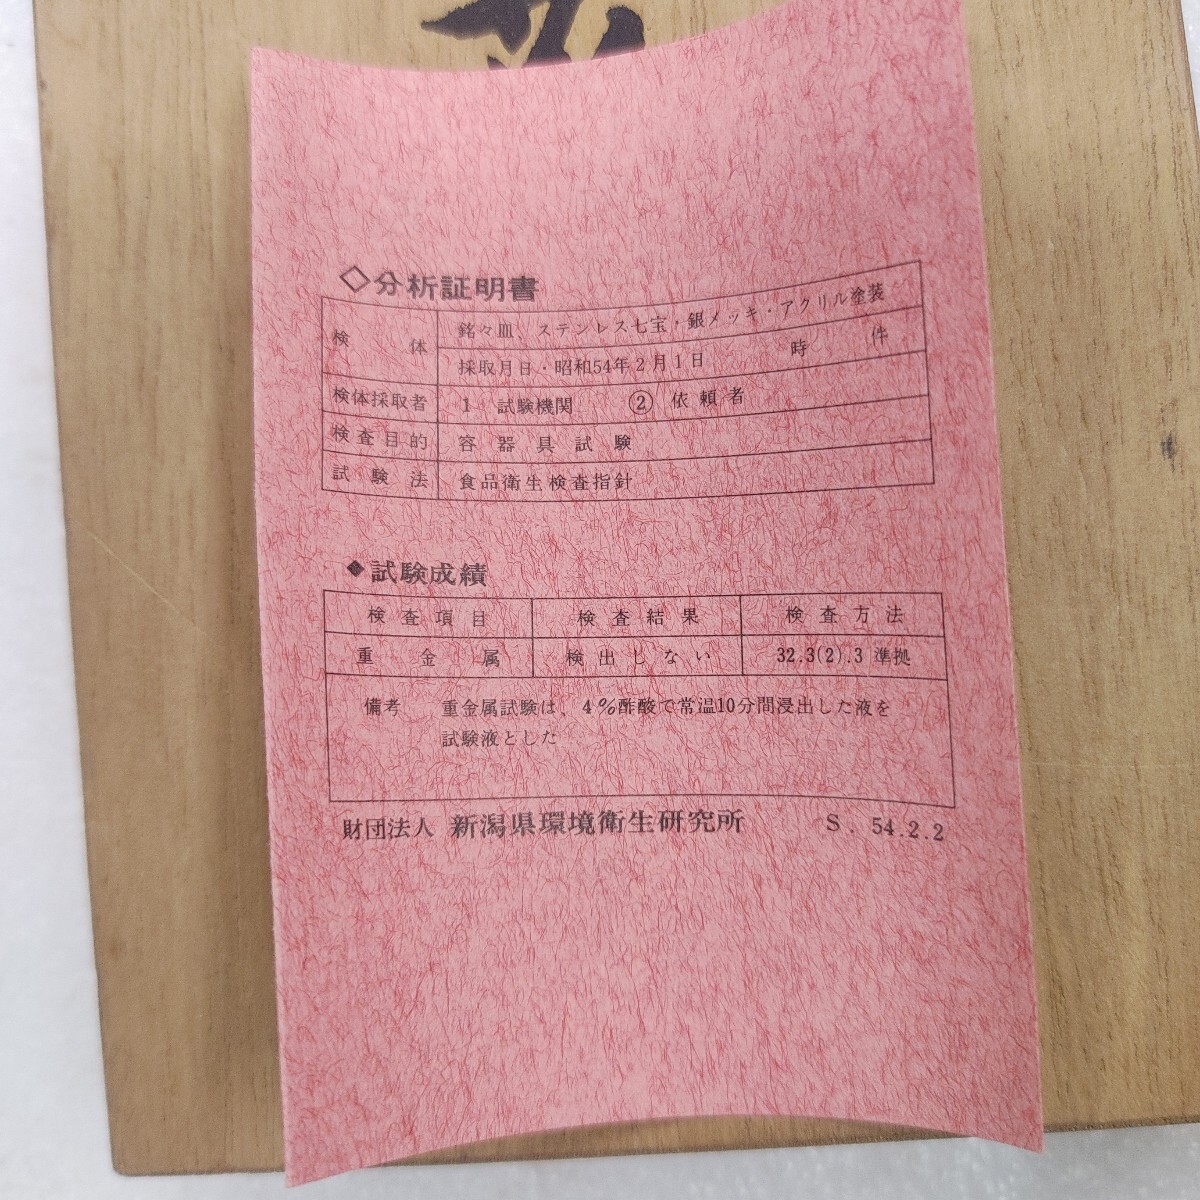 ◇分析証明書
検体 銘々皿、ステンレス七宝・銀メッキ・アクリル塗装
採取月日・昭和54年2月1日 時 件
検体採取者 1 試験機関 ② 依頼者
検査目的 容器具試験
試験法 食品衛生検査指針
◆試験成績
検査項目 検査結果 検査方法
重金属 検出しない 32.3(2).3 準拠
備考 重金属試験は、4%酢酸で常温10分間浸出した液を
試験液とした
財団法人 新潟県環境衛生研究所 S. 54.2.2